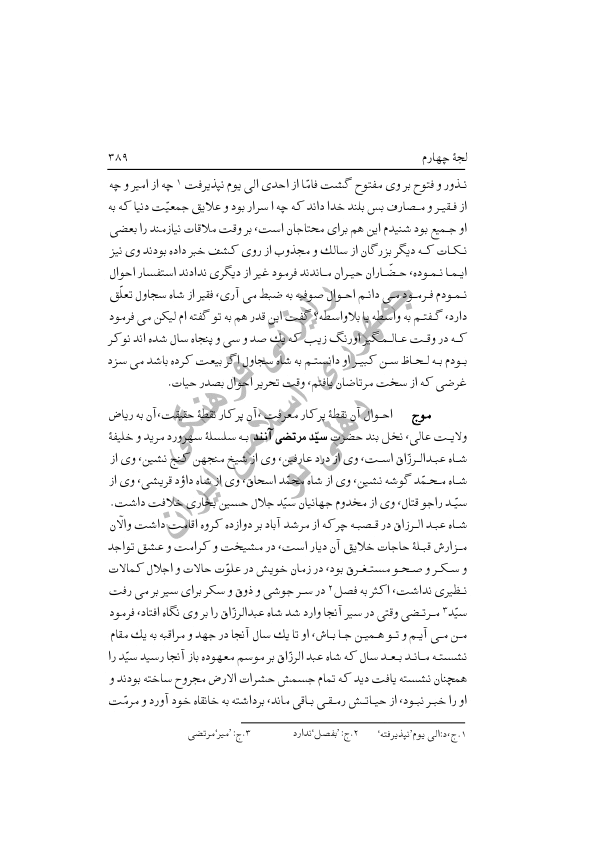 لجهٔ چهارم ۳۸۹
نـذور و فتوح بر وی مفتوح گشت فامّا از احدی الی یوم نپذیرفت ۱ چه از امیر و چه
از فـقیـر و مـصارف بس بلند خدا داند که چه ا سرار بود و علایق جمعیّت دنیا که به
او جـمیع بود شنیدم این هم برای محتاجان است، بر وقت ملاقات نیازمند را بعضی
نـکـات کـه دیگر بزرگان از سالك و مجذوب از روی کشف خبر داده بودند وی نیز
ایـمـا نـمـوده، حـضّـاران حیـران مـاندند فرمود غیر از دیگری ندادند استفسار احوال
نـمـودم فـرمـود مـی دانـم احـوال صوفیه به ضبط می آری، فقیر از شاه سجاول تعلّق
دارد، گـفتـم به واسطه یا بلاواسطه؟ گفت این قدر هم به تو گفته ام لیکن می فرمود
کـه در وقـت عـالـمگیر اورنگ زیب که یك صد و سی و پنجاه سال شده اند نوکر
بـودم بـه لـحـاظ سـن کبیـر او دانستـم به شاه سجاول اگر بیعت کرده باشد می سزد
غرضی که از سخت مرتاضان یافتم، وقت تحریر احوال بصدر حیات.
موج احـوال آن نقطهٔ پرکار معرفت، آن پرکار نقطهٔ حقیقت، آن به ریاض
ولایـت عالی، نخل بند حضرت سیّد مرتضی آنند بـه سلسلهٔ سهرورد مرید و خلیفهٔ
شـاه عبدالـرزّاق اسـت، وی از درد عارفین، وی از شیخ منجهن کنج نشین، وی از
شـاه مـحـمّد گوشه نشین، وی از شاه محمّد اسحاق، وی از شاه داؤد قریشی، وی از
سیّـد راجو قتال، وی از مخدوم جهانیان سیّد جلال حسین بخاری خلافت داشت.
شـاه عبد الـرزاق در قـصبـه چرکه از مرشد آباد بر دوازده کروه اقامت داشت والآن
مـزارش قبلهٔ حاجات خلایق آن دیار است، در مشیخت و کرامت و عشق تواجد
و سـکـر و صـحـو مستـغـرق بود، در زمان خویش در علوّت حالات و اجلال کمالات
نـظیری نداشت، اکثر به فصل ۲ در سـر جوشی و ذوق و سکر برای سیر بر می رفت
سیّد ۳ مـرتـضی وقتی در سیر آنجا وارد شد شاه عبدالرزّاق را بر وی نگاه افتاد، فرمود
مـن مـی آیـم و تـو هـمیـن جـا بـاش، او تا یك سال آنجا در جهد و مراقبه به یك مقام
نشستـه مـانـد بـعـد سال که شاه عبد الرزّاق بر موسم معهوده باز آنجا رسید سیّد را
همچنان نشسته یافت دید که تمام جسمش حشرات الارض مجروح ساخته بودند و
او را خبـر نبـود، از حیـاتـش رمـقـی بـاقی ماند، برداشته به خانقاه خود آورد و مرمّت
۱.ج،د: الی یوم ’نپذیرفته‘ ۲.ج: ’بفصل‘ ندارد ۳.ج: ’میر‘ مرتضی